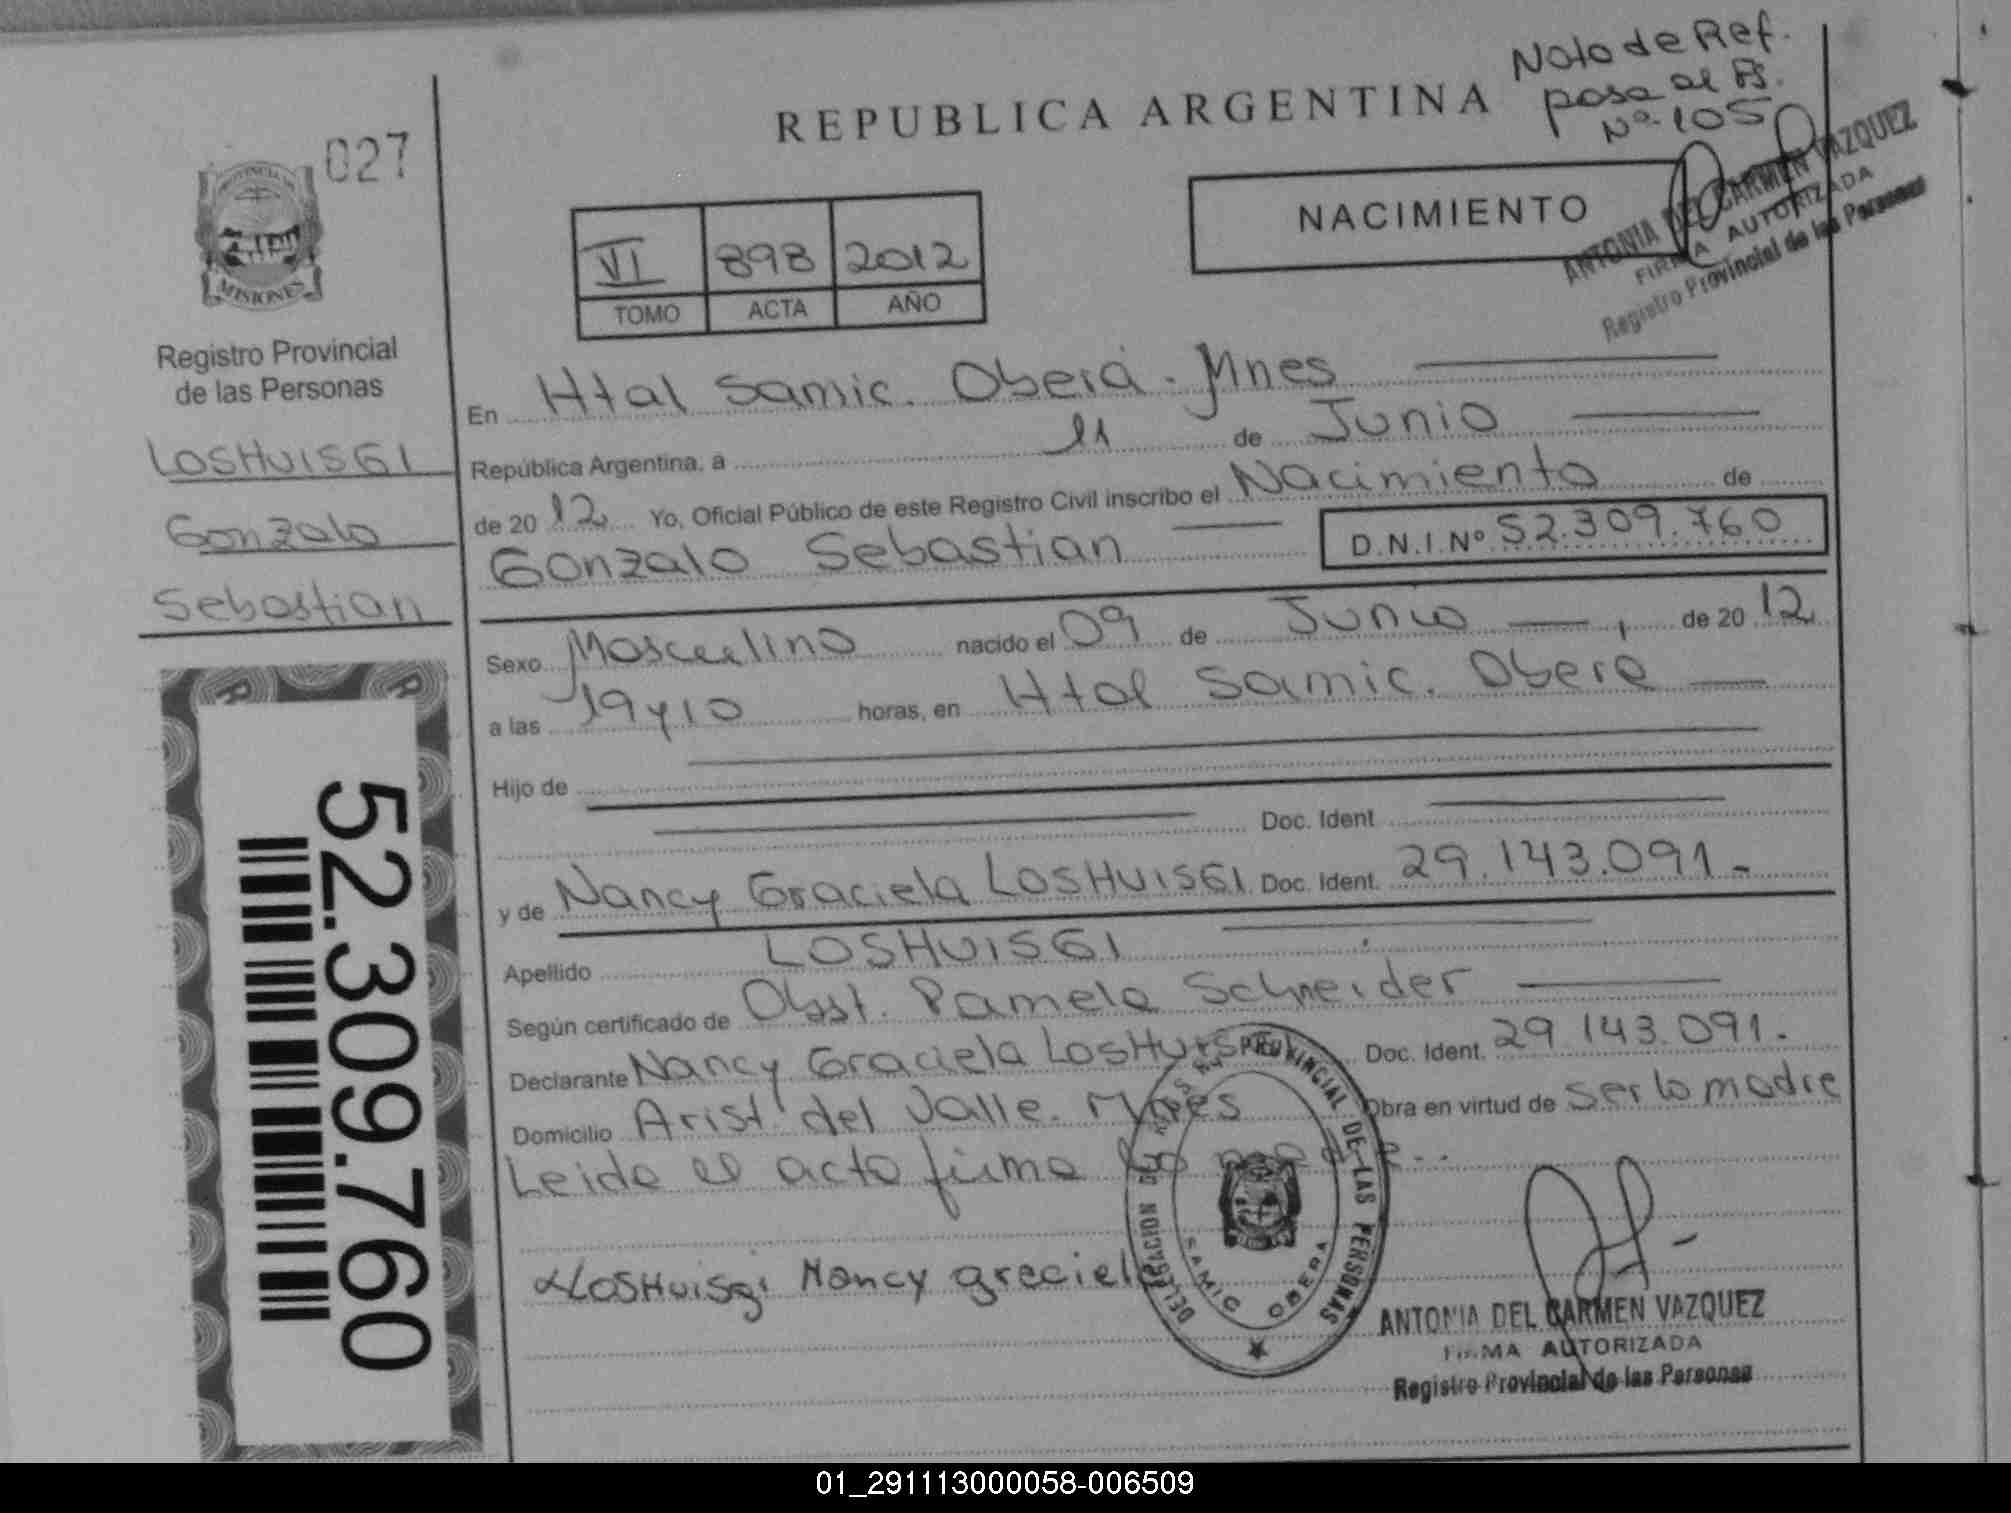 REPUBLICA ARGENTINA
Nota de Ref.
pasa al Fs.
Nº 105
027
PROVINCIA DE
MISIONES
Registro Provincial
de las Personas
LOSHUISGI
Gonzalo
Sebastian
52.309.760
VI 898 2012
TOMO ACTA AÑO
NACIMIENTO
ANTONIA DEL CARMEN VAZQUEZ
FIRMA AUTORIZADA
Registro Provincial de las Personas
En Htal Samic. Oberá - Mnes
República Argentina, a 11 de Junio
de 20 12 Yo, Oficial Público de este Registro Civil inscribo el Nacimiento de
Gonzalo Sebastian D.N.I.Nº 52.309.760
Sexo Masculino nacido el 09 de Junio, de 20 12
a las 19 y 10 horas, en Htal Samic. Obera
Hijo de
Doc. Ident.
y de Nancy Graciela LOSHUISGI Doc. Ident. 29.143.091.-
Apellido LOSHUISGI
Según certificado de Obst. Pamela Schneider
Declarante Nancy Graciela LosHuisgi Doc. Ident. 29.143.091.-
Domicilio Arist. del Valle. Mnes Obra en virtud de ser la madre
Leida el acta firma la madre..
LOSHuisgi Nancy graciela
DELEGACION DEL REGISTRO PROVINCIAL DE LAS PERSONAS
SAMIC OBERA
ANTONIA DEL CARMEN VAZQUEZ
FIRMA AUTORIZADA
Registro Provincial de las Personas
01_291113000058-006509